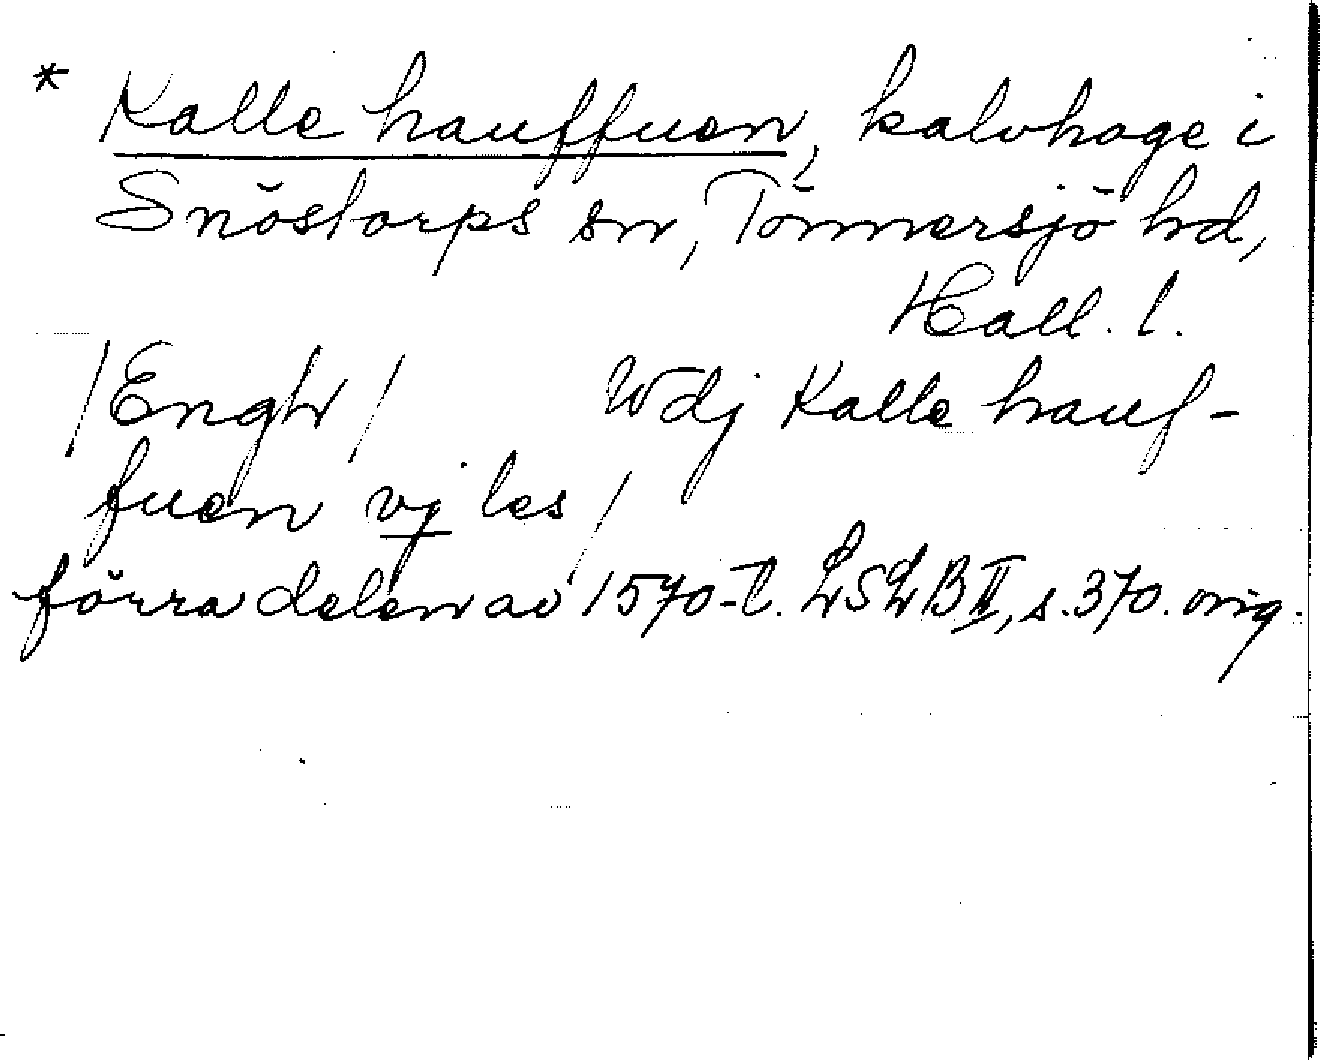 * Kalle hauffuen, kalvhage i
Snöstorps sn, Tönnersjö hd,
Hall. l.
/Engh/ Wdj Kalle hauf-
fuen vj les/
förra delen av 1570-t. LSLB II, s. 370. orig.